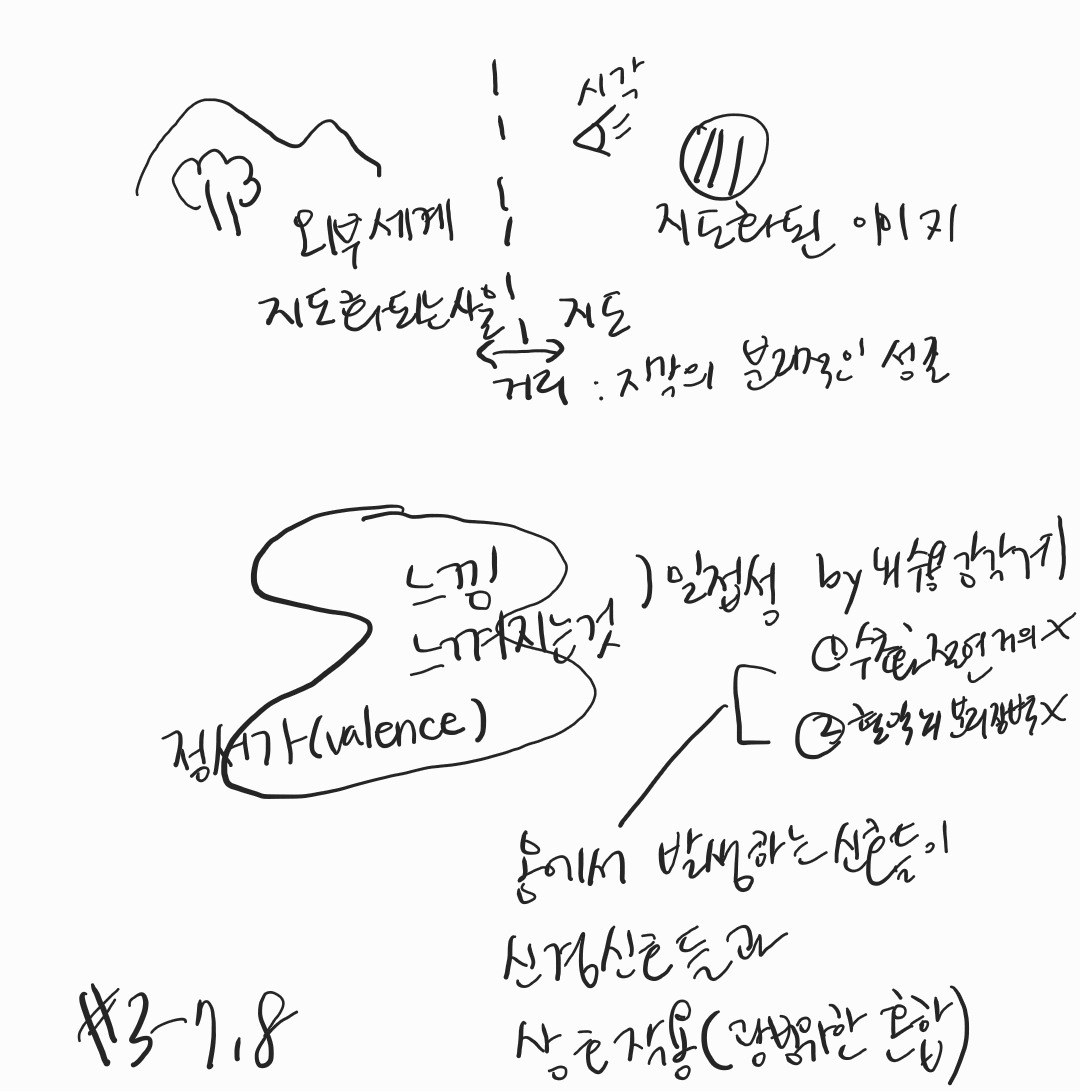 시각
외부세계
지도화된 이미지
지도화되는사물
지도
거리 : 지각의 분리적인 성질
느낌
느껴지는것
) 밀접성 by 내수용 감각의
정서가(valence)
① 수초화 X
② 혈액뇌 X
몸에서 발생하는 신호들이
신경신호들과
상호작용(광범위한 혼합)
#3-7,8